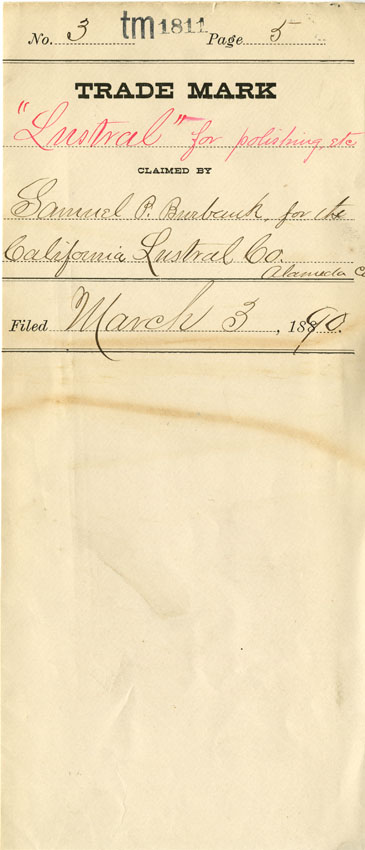 No. 3 tm 1811 Page 5
TRADE MARK
"Lustral" for polishing, etc.
CLAIMED BY
Samuel P. Burbank, for the
California Lustral Co.
Alameda Co
Filed March 3, 1890.